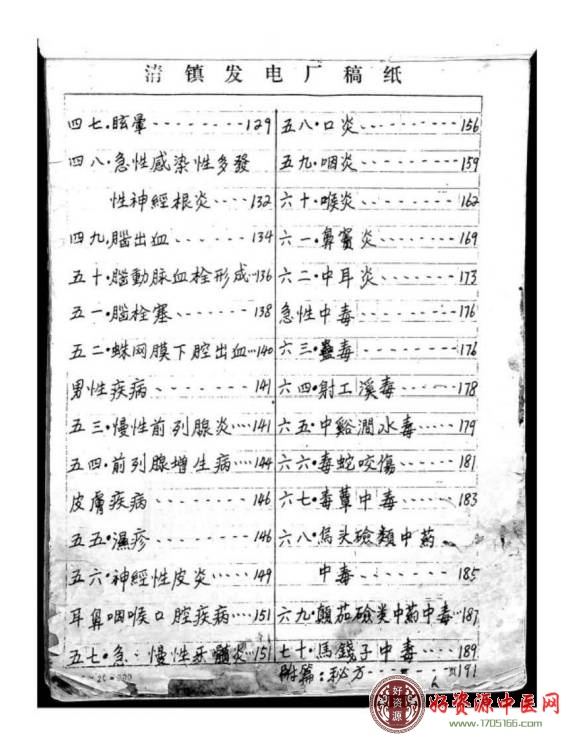 清镇发电厂稿纸
四七.眩暈--------129
四八.急性感染性多發
性神經根炎----132
四九.腦出血------134
五十.腦動脉血栓形成-136
五一.腦栓塞------138
五二.蛛网膜下腔出血---140
男性疾病--------141
五三.慢性前列腺炎---141
五四.前列腺增生病---144
皮膚疾病--------146
五五.濕疹--------146
五六.神經性皮炎-----149
耳鼻咽喉口腔疾病----151
五七.急、慢性牙髓炎-151
五八.口炎--------156
五九.咽炎--------159
六十.喉炎--------162
六一.鼻竇炎-------169
六二.中耳炎-------173
急性中毒--------176
六三.蠱毒--------176
六四.射工溪毒-----178
六五.中谿澗水毒----179
六六.毒蛇咬傷-----181
六七.毒蕈中毒-----183
六八.馬头硷類中药
中毒---------185
六九.顛茄硷类中药中毒--187
七十.馬錢子中毒----189
附篇:秘方-------191
好资源
好资源中医网
www.1705166.com